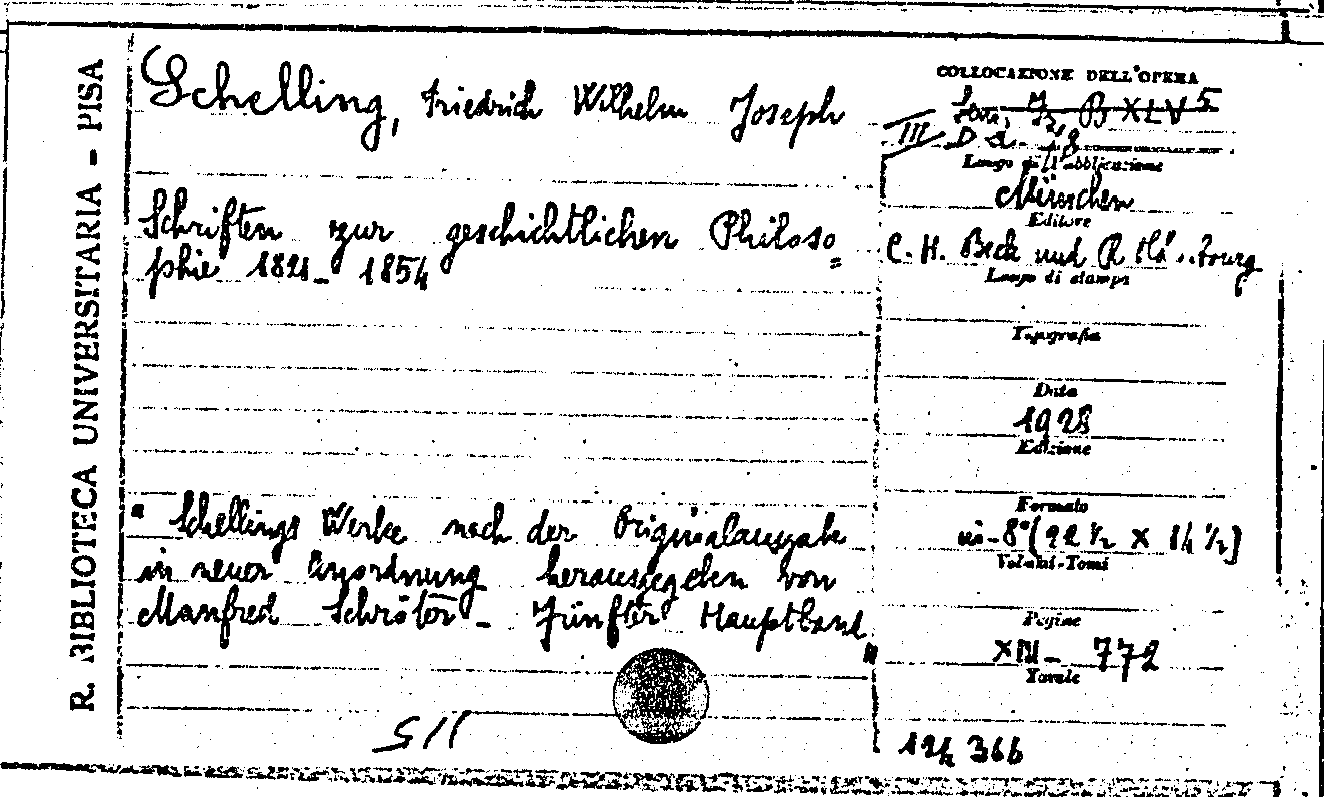 R. BIBLIOTECA UNIVERSITARIA - PISA
Schelling, Friedrich Wilhelm Joseph
Schriften zur geschichtlichen Philoso=
phie 1821-1854
" Schellings Werke nach der Originalausgabe
in neuer Anordnung herausgegeben von
Manfred Schröter - Fünfter Hauptband"
5/1
COLLOCAZIONE DELL'OPERA
B XLV 5
III D a. 18
Luogo di Pubblicazione
München
Editore
C. H. Beck und R.
Luogo di stampa
Tipografia
Data
1928
Edizione
Formato
in-8°(22 ½ x 14 ½)
Volumi-Tomi
Pagine
XIII- 772
Tavole
124 366